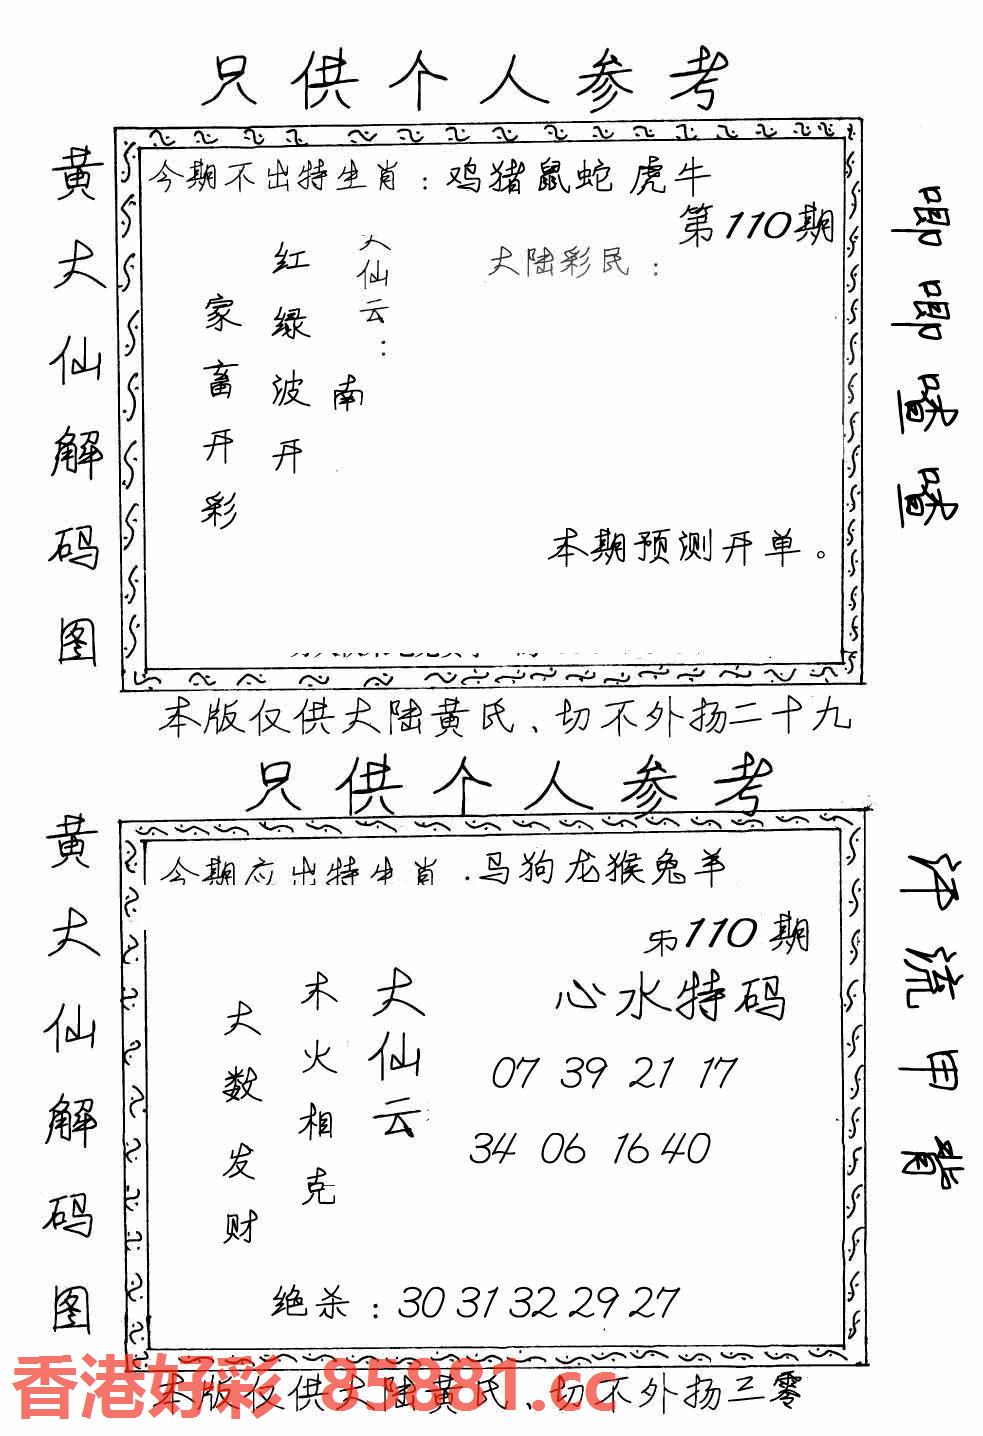 只供个人参考
黄大仙解码图
今期不出特生肖：鸡猪鼠蛇虎牛
第110期
大陆彩民：
大仙云：
南
红绿波开
家畜开彩
本期预测开单。
唧唧喳喳
本版仅供大陆黄氏、切不外扬二十九
只供个人参考
黄大仙解码图
今期应出特生肖：马狗龙猴兔羊
第110期
心水特码
07 39 21 17
34 06 16 40
大仙云
木火相克
大数发财
绝杀：30 31 32 29 27
汗流甲背
本版仅供大陆黄氏、切不外扬三零
香港好彩 85881.cc